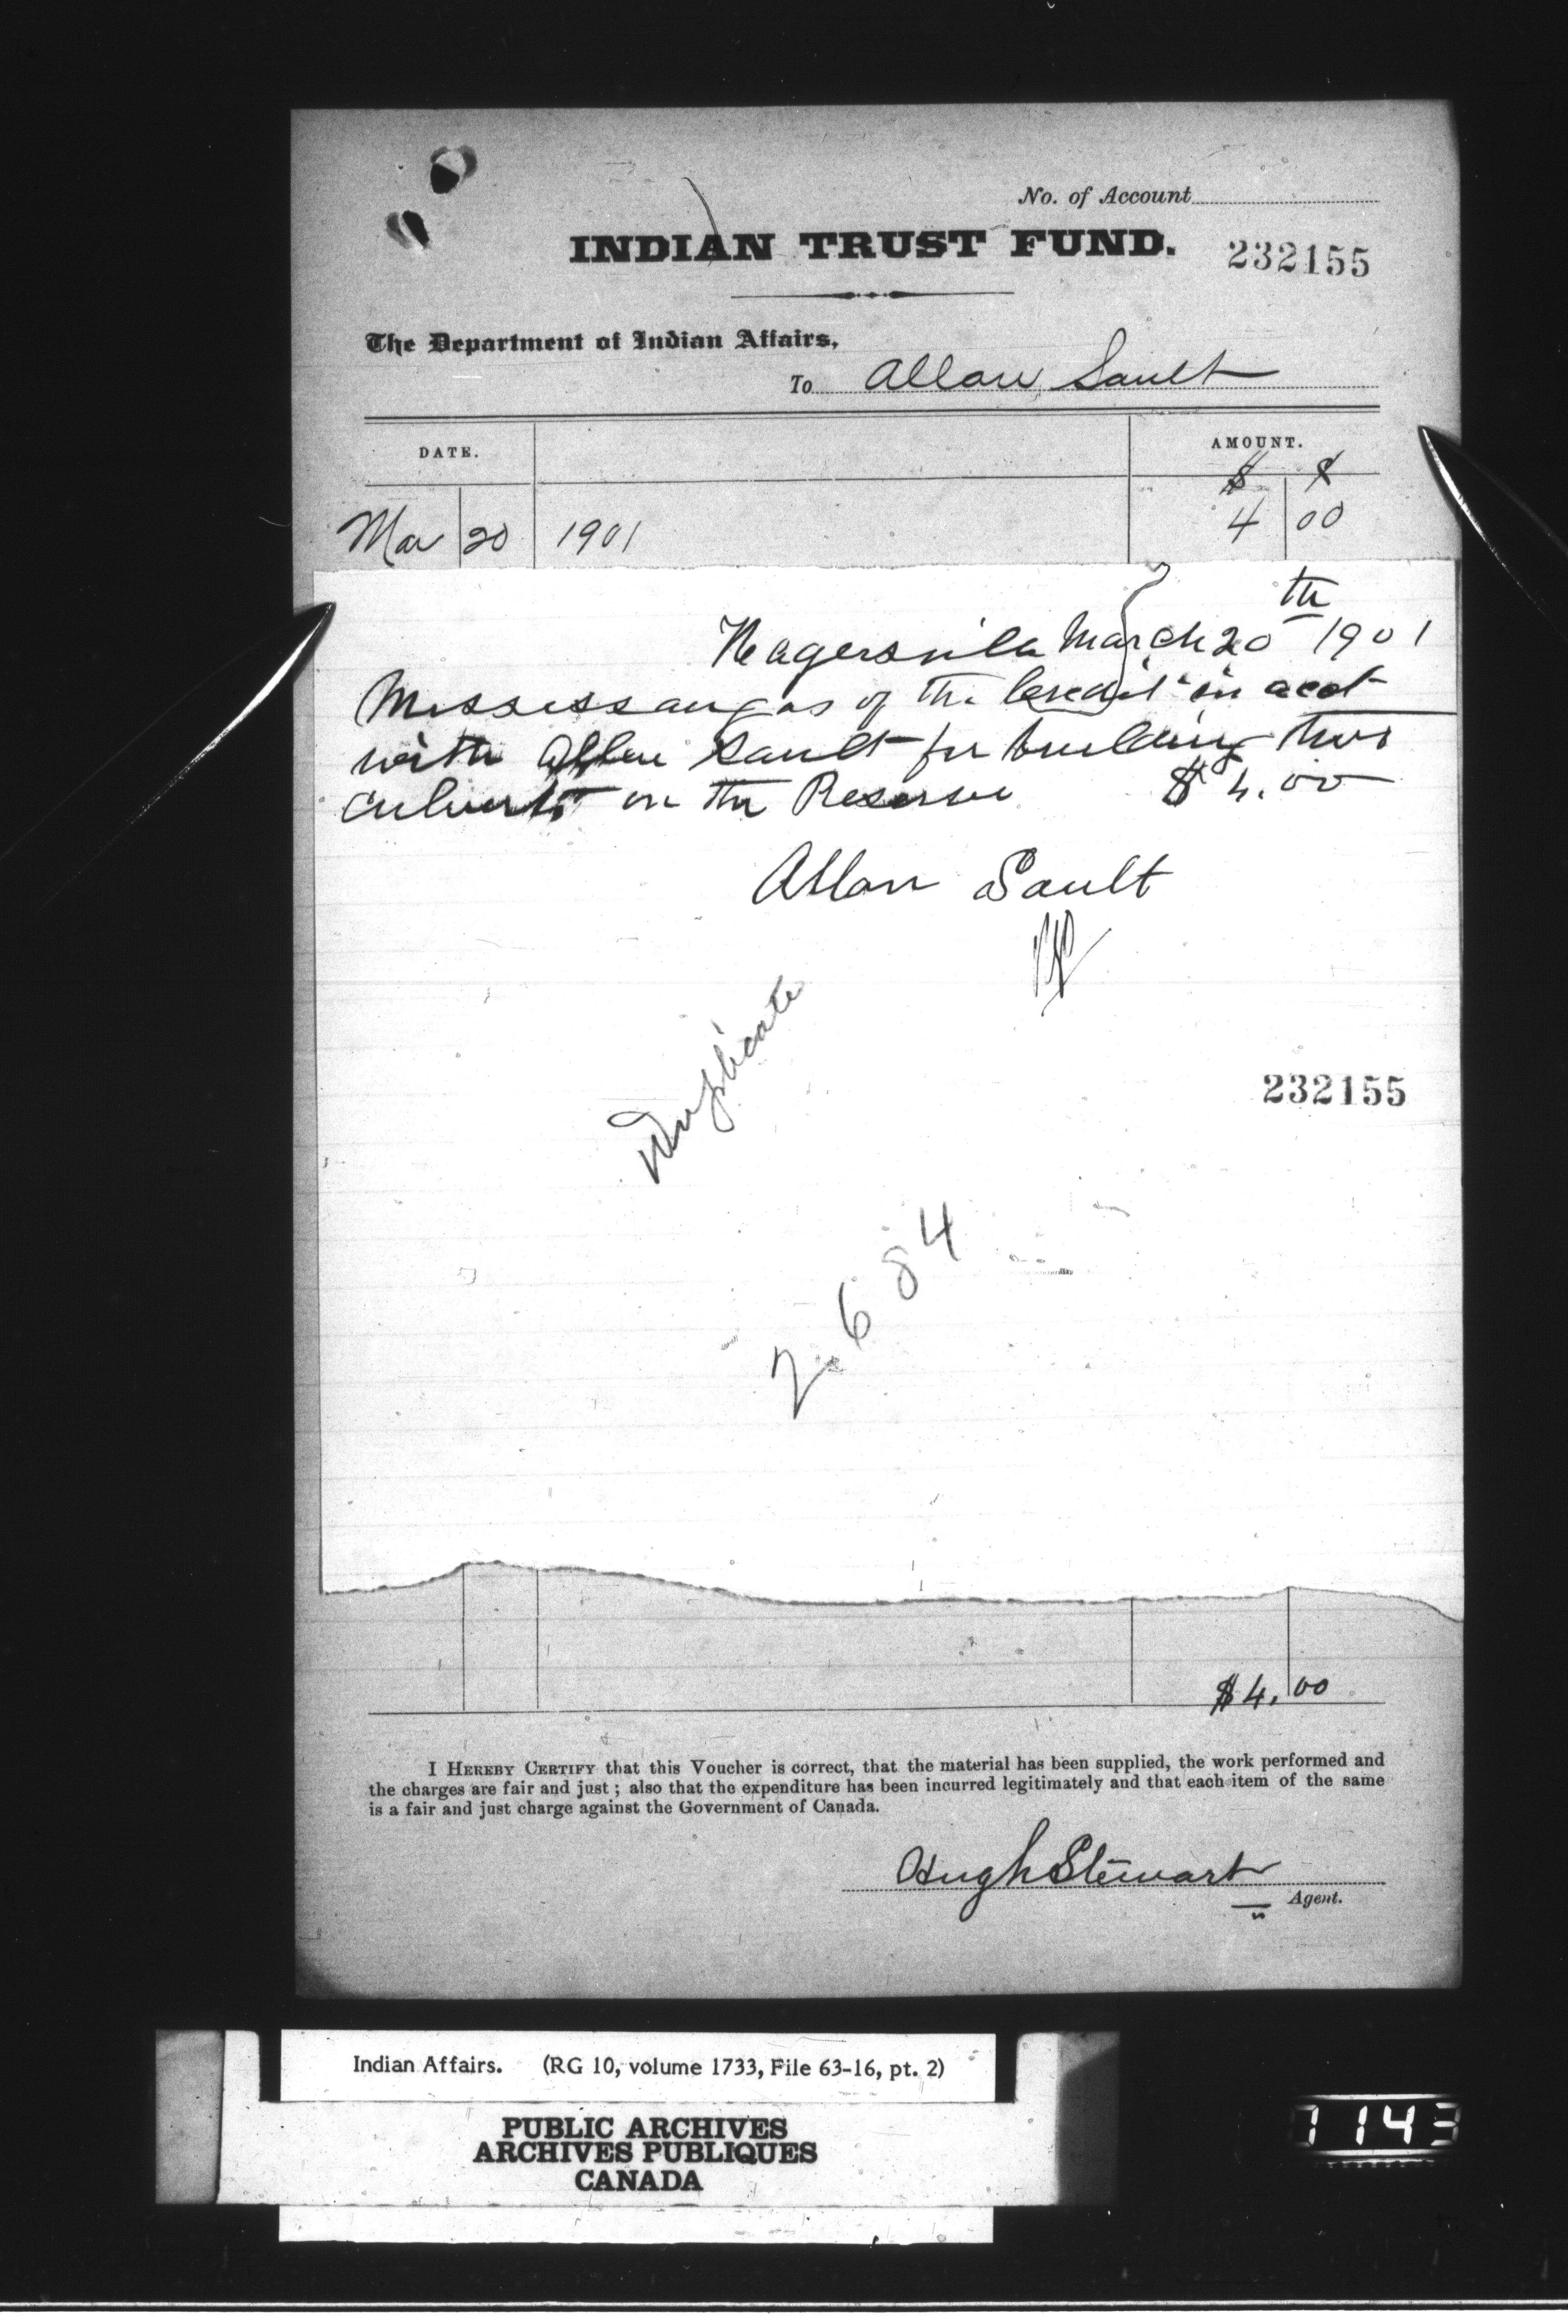 No. of Account
INDIAN TRUST FUND.
232155
The Department of Indian Affairs,
To Allan Sault
DATE.
AMOUNT.
$
Mar 20 1901 4 00
Hagersville March 20th 1901
Mississaugas of the Credit in acct
with Allan Sault for building two
culverts on the Reserve $4.00
Allan Sault
Duplicate
232155
2684
$4.00
I HEREBY CERTIFY that this Voucher is correct, that the material has been supplied, the work performed and
the charges are fair and just; also that the expenditure has been incurred legitimately and that each item of the same
is a fair and just charge against the Government of Canada.
Hugh Stewart
Agent.
Indian Affairs. (RG 10, volume 1733, File 63-16, pt. 2)
PUBLIC ARCHIVES
ARCHIVES PUBLIQUES
CANADA
1143